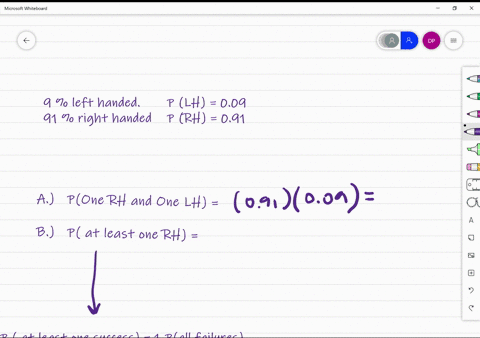 Microsoft Whiteboard
DP
9 % left handed. P (LH) = 0.09
91 % right handed P (RH) = 0.91
A.) P(One RH and One LH) = (0.91)(0.09) =
B.) P( at least one RH) =
P ( at least one success) = 1 P(all failures)